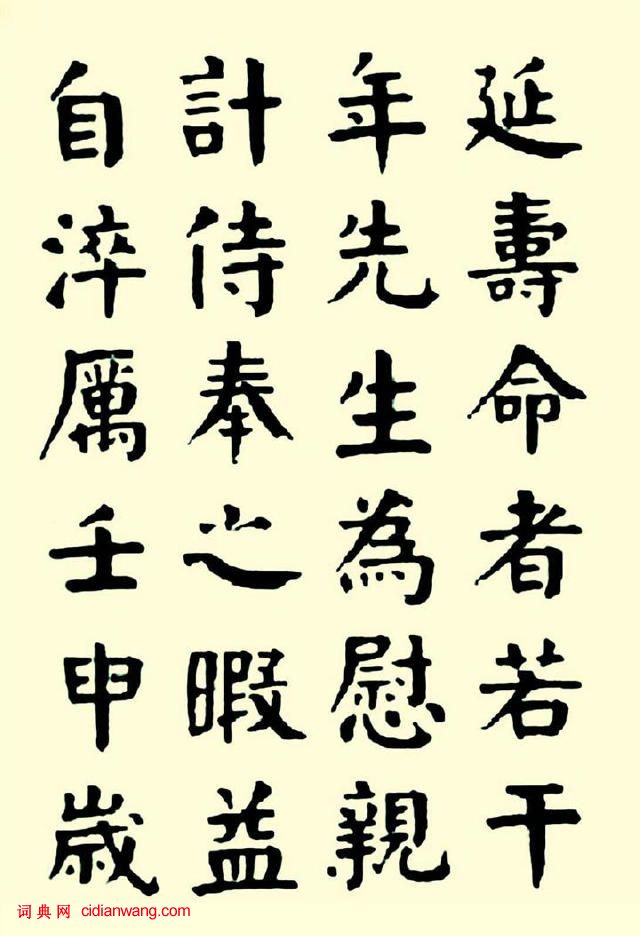 延壽命者若干
年先生為慰親
計侍奉之暇益
自淬厲壬申歲
词典网 cidianwang.com